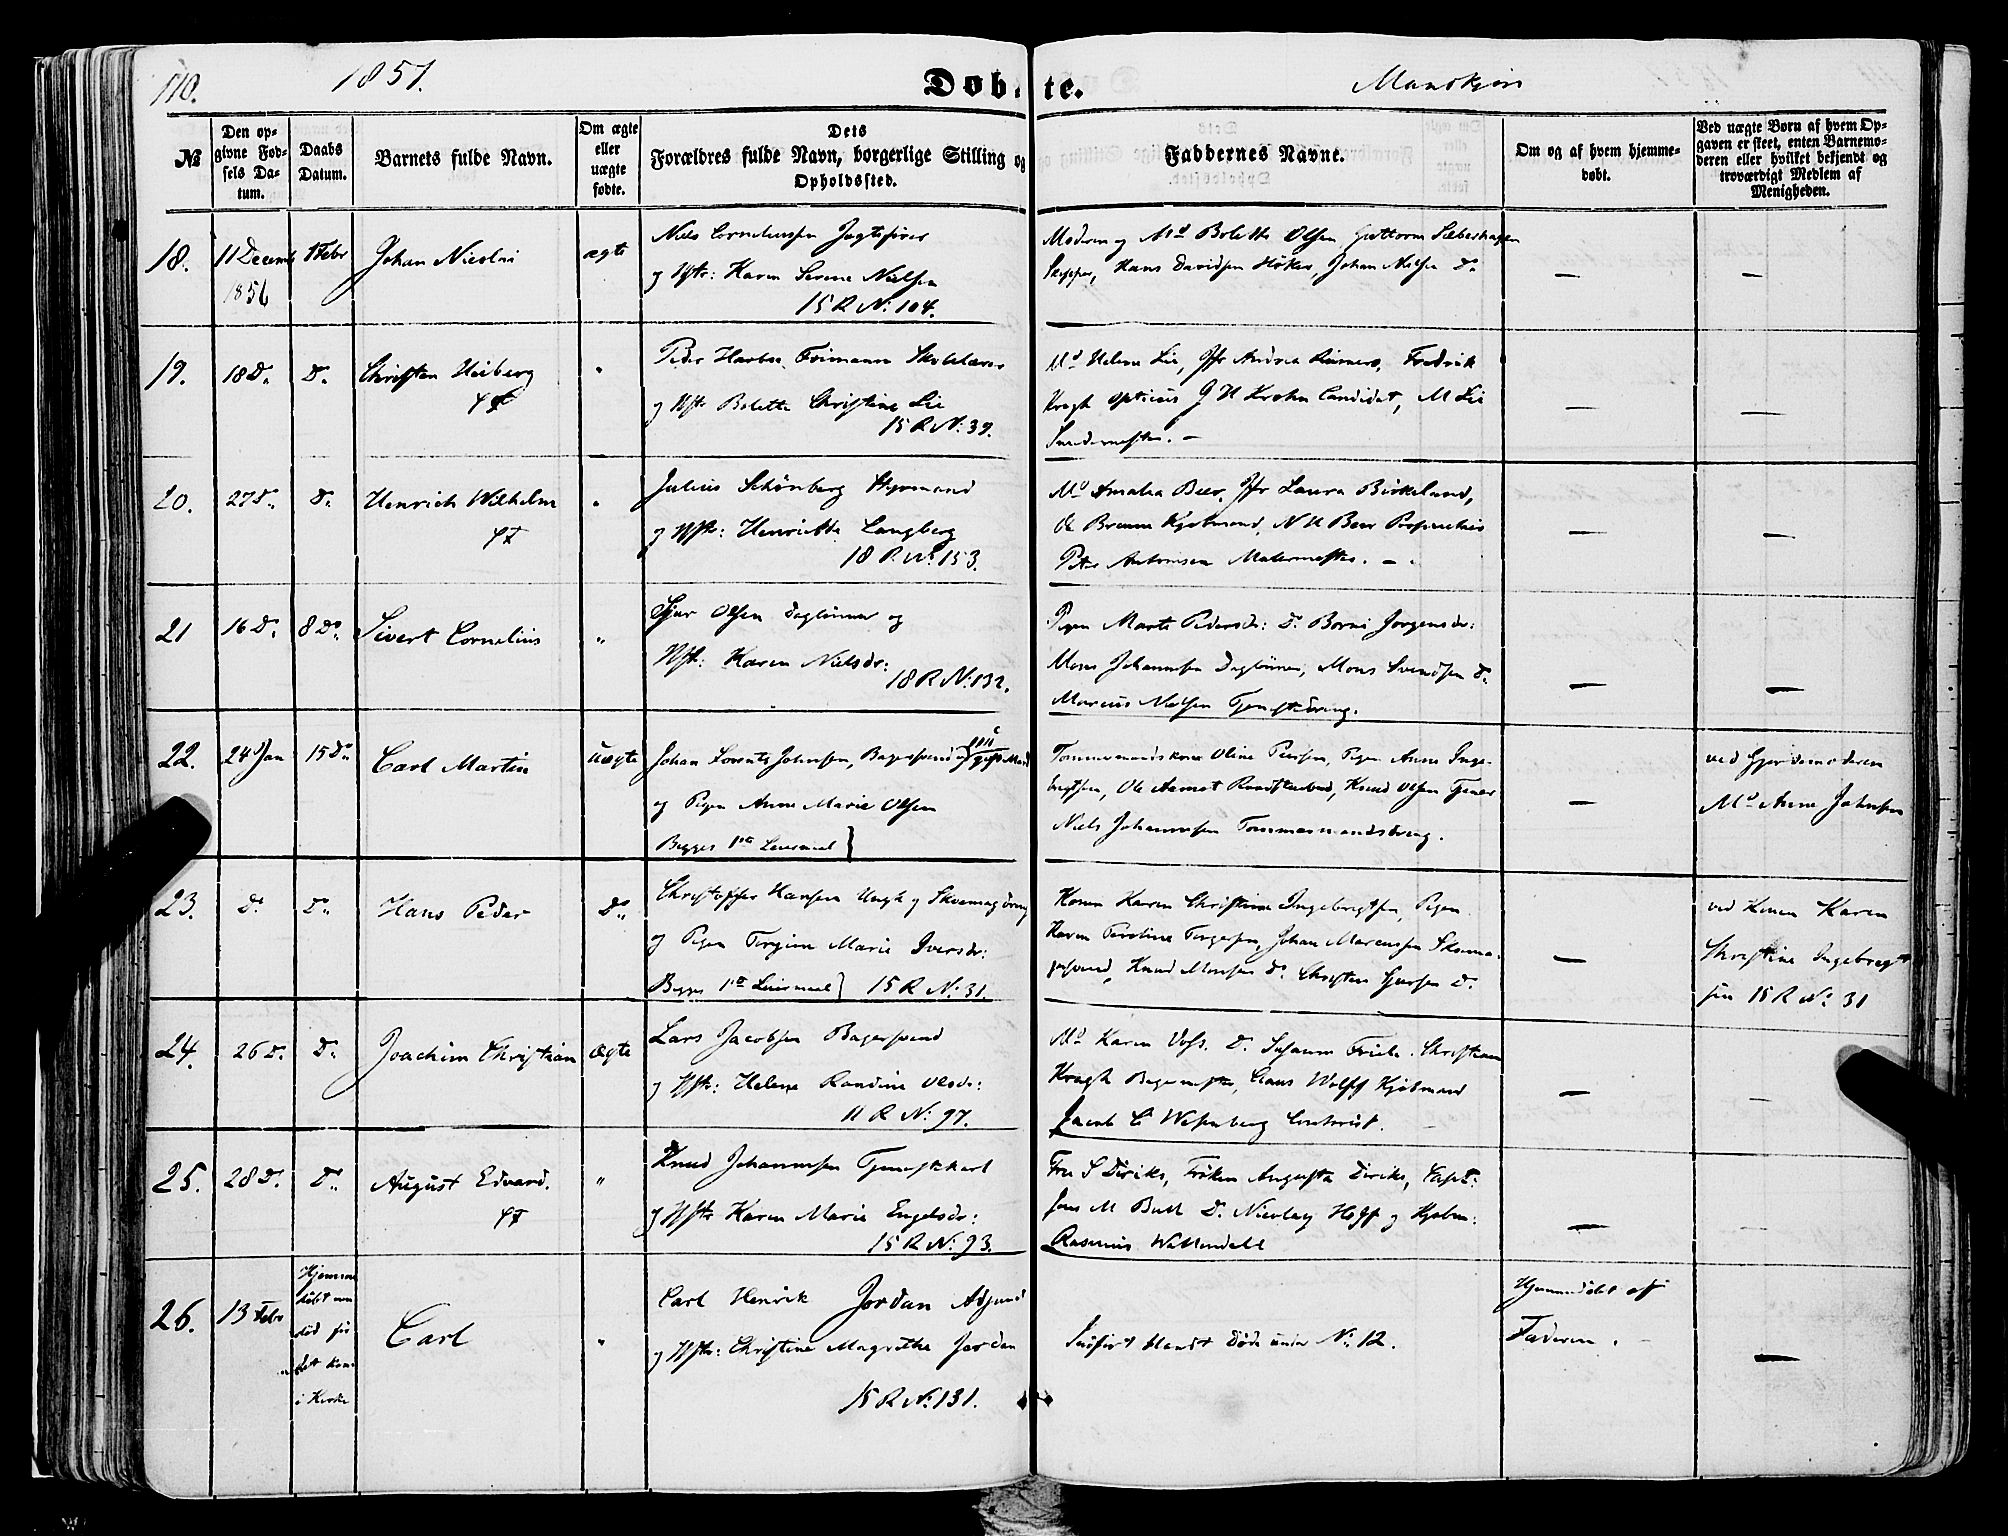 110.
1857.
Døbte.
Mandkjøn
№
Den opgivne Fødsels Datum.
Daabs Datum.
Barnets fulde Navn.
Om ægte eller uægte fødte.
Dets Forældres fulde Navn, borgerlige Stilling og Opholdssted.
Faddernes Navne.
Om og af hvem hjemmedøbt.
Ved uægte Børn af hvem Opgaven er skeet, enten Barnemoderen eller hvilket bekjendt og troværdigt Medlem af Menigheden.
18.
11 Decemb
1856
1 Febr
Johan Nicolai
ægte
Niels Corneliussen Jagtefører
og Hstr: Karen Serene Nielsen
15 R N: 104.
Moderen og Md Bolette Olsen, Guttorm
Skipper, Hans Davidsen Høker, Johan Nielsen Do
—
—
19.
18 Do
Do
Christen Heiberg
"
Peder Harboe Frimann Skolelærer
og Hstr Bolette Christine Lie
15 R N: 39.
Md Helene Lie, Jfr Andrea Reimers, Fredrik
Kragh Opticus G H Krohn Candidat, M Lie
Snedermester. —
—
—
20.
27 Do
Do
Henrich Wilhelm
"
Julius Schönberg Styrmand
og Hstr: Henriette Langberg
18 R. No 153.
Md Amalia Beer, Jfr Laura Birkeland,
Ole Bruun Kjøbmand, N H Beer Proprietair
Peter Antonisen Malermester. —
—
—
21
16 Do
8 Do
Sivert Cornelius
"
Sjur Olsen Dagleiner og
Hstr: Karen Nielsdr:
18 R N: 132.
Pigen Marte Pedersdr: Do Borni Jørgensdr:
Mons Johannesen Dagleiner, Mons Svendsen Do
Marcus Nielsen Tjenestedreng.
—
—
22.
24 Jan
15 Do
Carl Martin
uægte
Johan Lorentz Johnsen, Bagersvend
og Pigen Anne Marie Olsen
Begges 1ste Leiermaal }
Tømmermandskone Oline Peersen, Pigen Anne Ingebregtsen, Ole Aamot
Knud Olsen Tjener
Niels Johannesen Tømmermandsdreng.
—
ved Gjordemoderen
Md Anne Johnsen
23.
Do
Do
Hans Peder
Do
Christopher Hansen Ungk og Skomagdreng
og Pigen Torgine Marie Iversdr:
Begges 1ste Leiermaal } 15 R N: 31.
Konen Karen Christine Ingebregtsen, Pigen
Karen Caroline Torgersen, Johan Marcussen Skomagersvend, Knud Monsen Do
—
ved Konen Karen
Christine Ingebregtsen 15 R No 31
24.
26 Do
Do
Joachim Christian
Ægte
Lars Jacobsen Bagersvend
og Hstr: Helene Randine Olsdr:
11 R N: 97.
Md Karen Voss. Do Susanne Friele. Christian
Kragh Bagermester, Claus Wolff Kjøbmand
Jacob C Wesenberg Contorist.
—
—
25.
28 Do
Do
August Edvard.
"
Knud Johannesen Tjenestekarl
og Hstr Karen Marie Engelsdr:
15 R N: 93.
Fru S Diriks, Frøken Augusta Diriks, Capt:
Jens M Bull Do Nicolay Hoff og Kjøbm:
Rasmus Wallendahl
—
—
26.
13 Febr
Hjemmedøbt men
død før
det kom
i Kirke
Carl
"
Carl Henrik Jordan Adjunct
og Hstr: Christine Magrethe Jordan
15 R N: 131.
Indført blandt Døde under N: 12.
Hjemmedøbt af
Faderen.
—